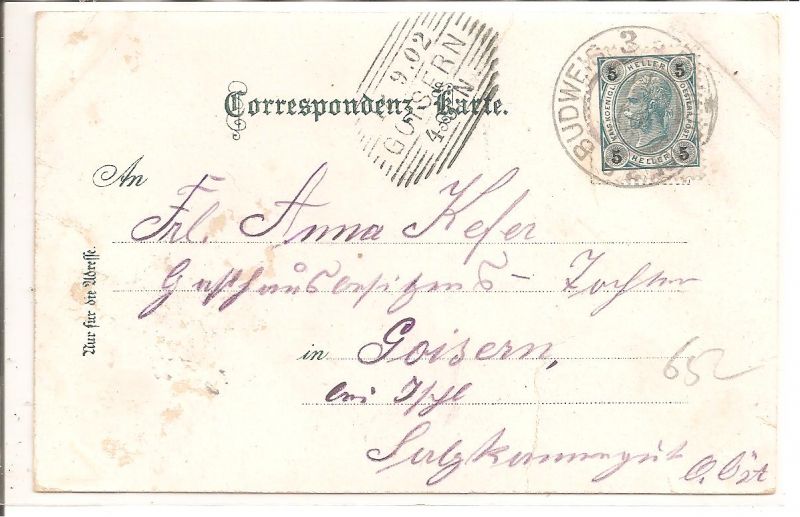 Correspondenz-Karte.
9.02
GOISERN
BUDWEIS 3
5 HELLER 5
5 HELLER 5
An
Frl. Anna Kefer
Gasthausbesitzers- Tochter
in Goisern,
bei Ischl
Salzkammergut
O. Öst
652
Nur für die Adresse.